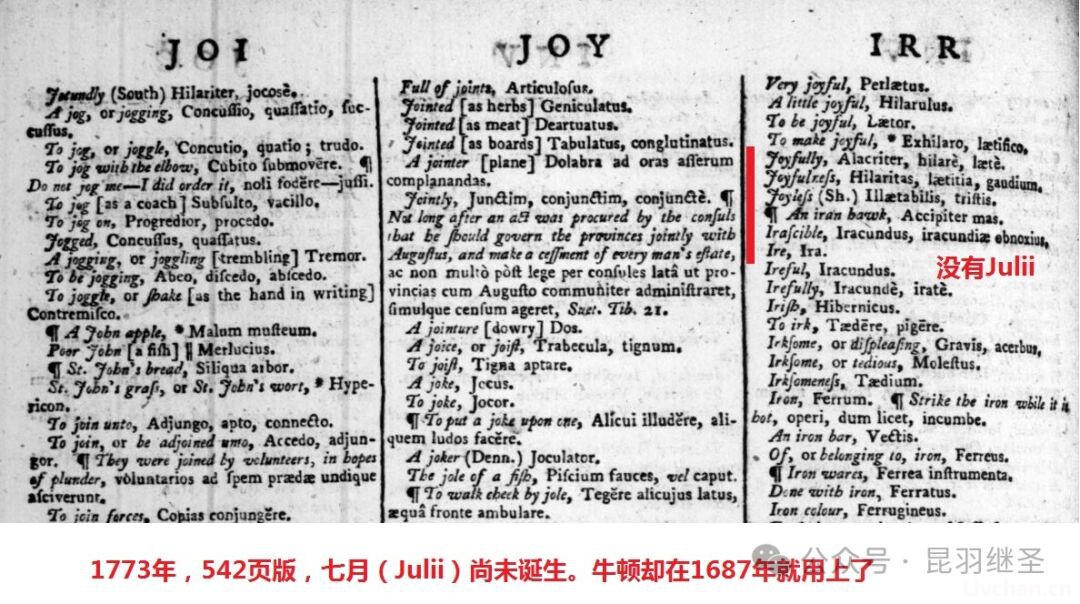 JOI
Jocundly (South) Hilariter, jocosè.
A jog, or jogging, Concussio, quassatio, suc-
cussus.
To jog, or joggle, Concutio, quatio; trudo.
To jog with the elbow, Cubito submovēre. ¶
Do not jog me—I did order it, noli fodēre—jussi.
To jog [as a coach] Subsulto, vacillo.
To jog on, Progredior, procedo.
Jogged, Concussus, quassatus.
A jogging, or joggling [trembling] Tremor.
To be jogging, Abeo, discedo, abscedo.
To joggle, or shake [as the hand in writing]
Contremisco.
¶ A John apple, * Malum musteum.
Poor John [a fish] ‖ Merlucius.
¶ St. John's bread, Siliqua arbor.
St. John's grass, or St. John's wort, * Hype-
ricon.
To join unto, Adjungo, apto, connecto.
To join, or be adjoined unto, Accedo, adjun-
gor. ¶ They were joined by volunteers, in hopes
of plunder, voluntarios ad spem prædæ undique
asciverunt.
To join forces, Copias conjungĕre.
JOY
Full of joints, Articulosus.
Jointed [as herbs] Geniculatus.
Jointed [as meat] Deartuatus.
Jointed [as boards] Tabulatus, conglutinatus.
A jointer [plane] Dolabra ad oras asserum
complanandas.
Jointly, Junctim, conjunctim, conjunctè. ¶
Not long after an act was procured by the consuls
that he should govern the provinces jointly with
Augustus, and make a cessment of every man's estate,
ac non multò pòst lege per consules latâ ut pro-
vincias cum Augusto communiter administraret,
simulque censum ageret, Suet. Tib. 21.
A jointure [dowry] Dos.
A joice, or joist, Trabecula, tignum.
To joist, Tigna aptare.
A joke, Jocus.
To joke, Jocor.
¶ To put a joke upon one, Alicui illudĕre, ali-
quem ludos facĕre.
A joker (Denn.) Joculator.
The jole of a fish, Piscium fauces, vel caput.
¶ To walk cheek by jole, Tegĕre alicujus latus,
æquâ fronte ambulare.
IRR
Very joyful, Perlætus.
A little joyful, Hilarulus.
To be joyful, Lætor.
To make joyful, * Exhilaro, lætifico.
Joyfully, Alacriter, hilarè, lætè.
Joyfulness, Hilaritas, lætitia, gaudium.
Joyless (Sh.) Illætabilis, tristis.
¶ An iran hawk, Accipiter mas.
Irascible, Iracundus, iracundiæ obnoxius.
Ire, Ira.
Ireful, Iracundus.
Irefully, Iracundè, iratè.
Irish, Hibernicus.
To irk, Tædēre, pigēre.
Irksome, or displeasing, Gravis, acerbus.
Irksome, or tedious, Molestus.
Irksomeness, Tædium.
Iron, Ferrum. ¶ Strike the iron while it is
hot, operi, dum licet, incumbe.
An iron bar, Vectis.
Of, or belonging to, iron, Ferreus.
¶ Iron wares, Ferrea instrumenta.
Done with iron, Ferratus.
Iron colour, Ferrugineus.
没有Julii
1773年，542页版，七月（Julii）尚未诞生。牛顿却在1687年就用上了
公众号 · 昆羽继圣
Livchan.cn